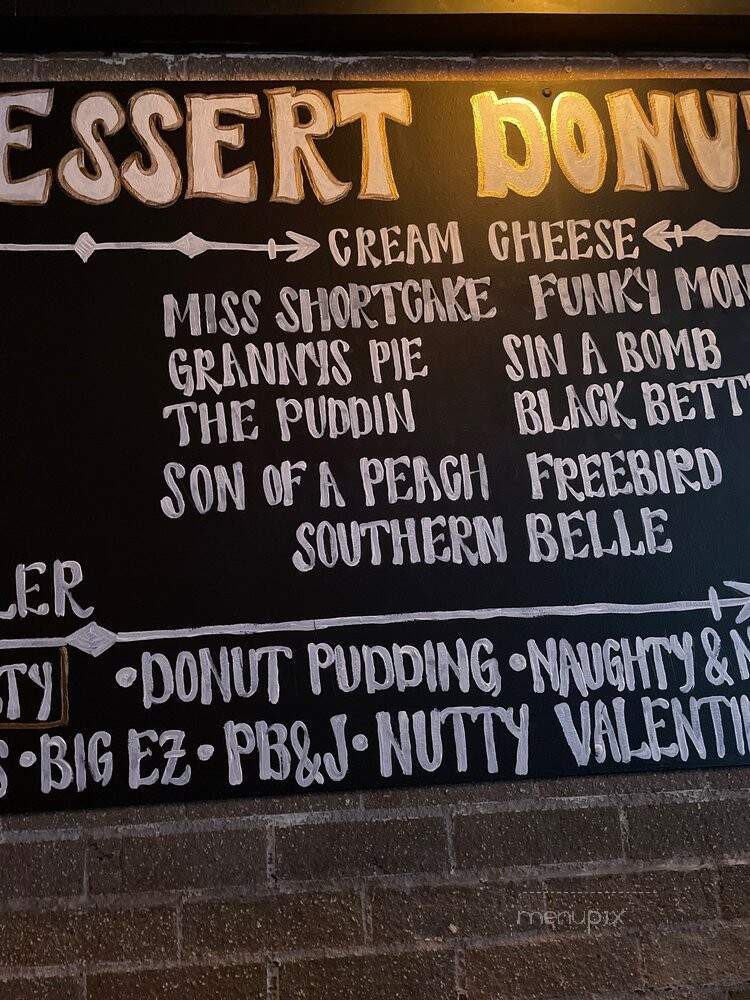 ESSERT DONU
CREAM CHEESE
MISS SHORTCAKE FUNKY MON
GRANNYS PIE SIN A BOMB
THE PUDDIN BLACK BETT
SON OF A PEACH FREEBIRD
SOUTHERN BELLE
LER
TY •DONUT PUDDING •NAUGHTY & N
S •BIG EZ• PB&J• NUTTY VALENTIN
menupix